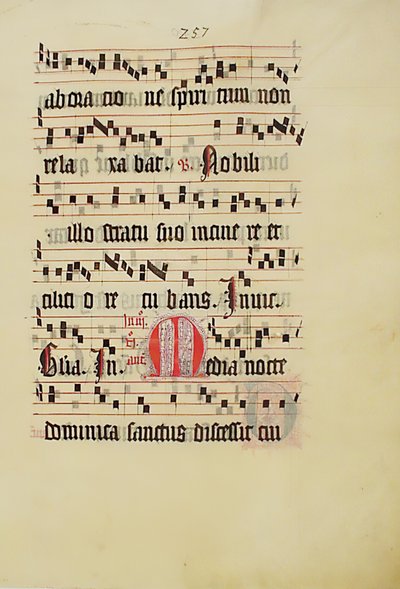 257
aboracio ne spiri tum non
rela xa bat. ℞. Nobili
illo stratu suo incine re et
cilici o re cu bans. Inuic.
Glīa. In. Media nocte
dominica sanctus discessit cui